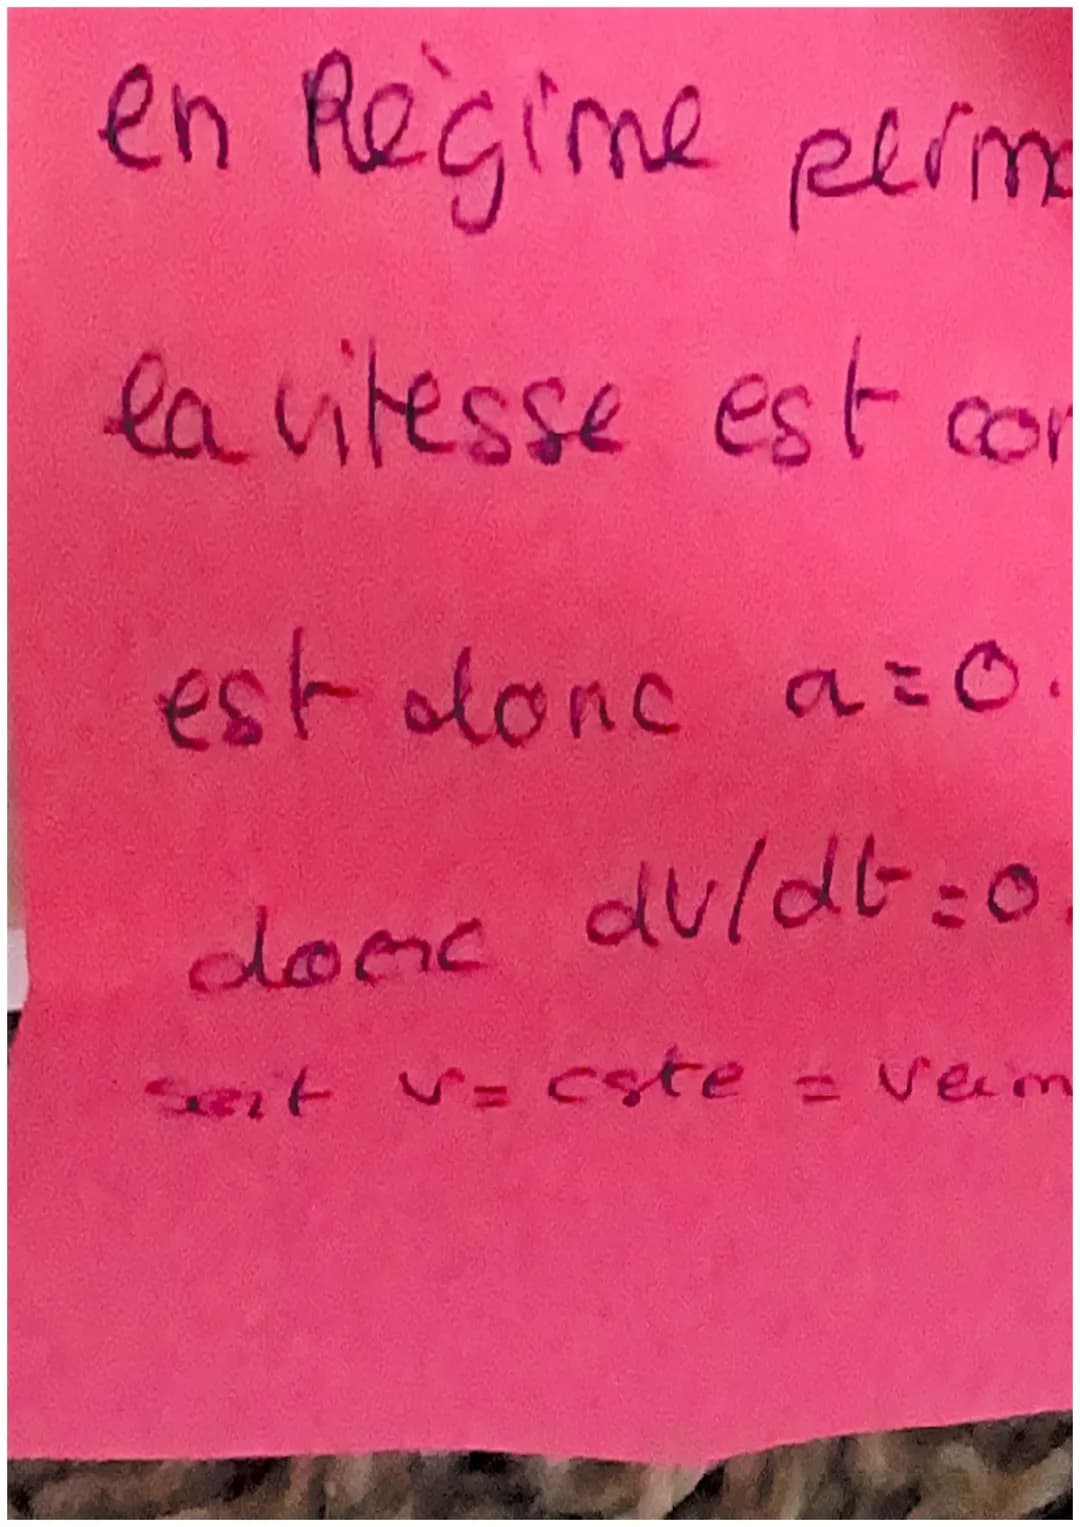 en Règime perma
la vitesse est con
est donc a=0.
donc dv/dt=0.
soit v= cste = veim